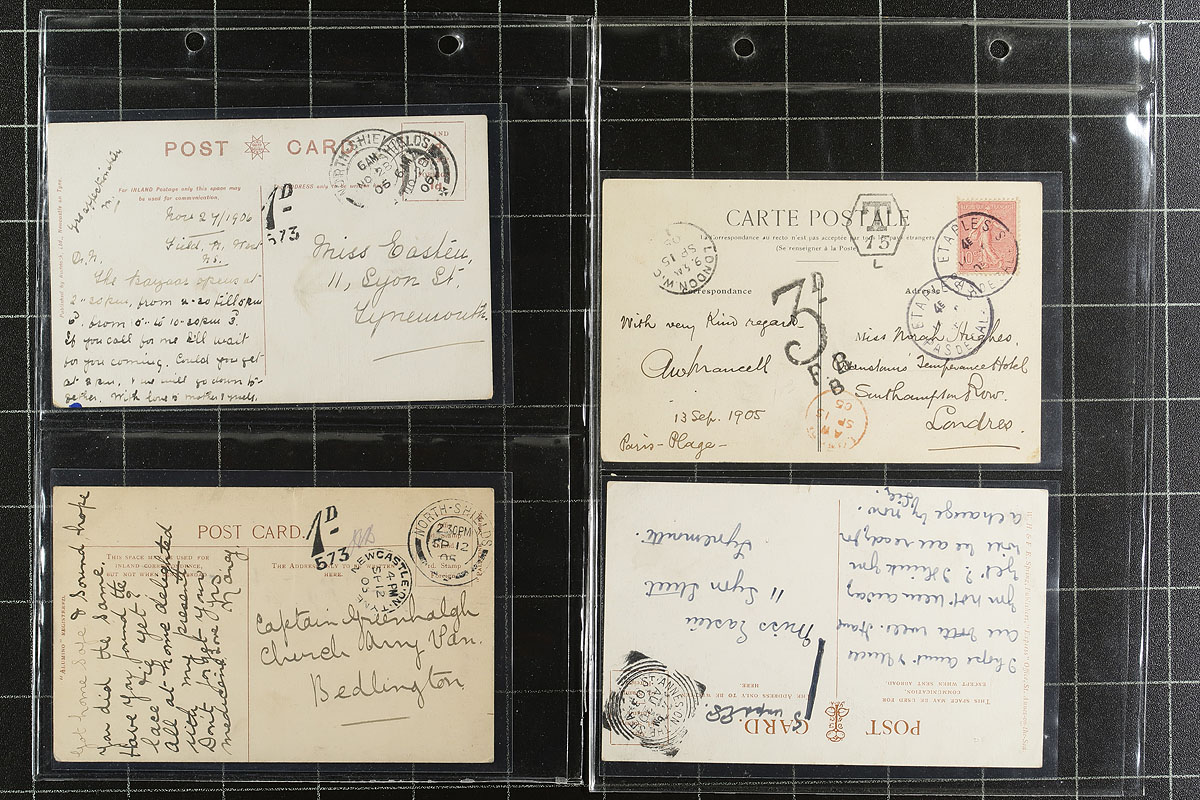 POST CARD
For INLAND Postage only this space may
be used for communication.
NORTH SHIELDS
6 AM
NO 28
06
1D
573
Nov 27/1906
The Bazaar opens at
If you call for me I'll wait
for you coming. Could you get
at 8 p.m. & we will go down to-
gether. With love
Miss Easten,
11, Lyon St.
Tynemouth.
POST CARD.
THIS SPACE MAY BE USED FOR
INLAND CORRESPONDENCE,
BUT NOT WHEN
THE ADDRESS ONLY TO BE WRITTEN
HERE.
"ALUMINO" REGISTERED.
1D
573
NORTH-SHIELDS
2.30PM
SP 12
05
NEWCASTLE ON TYNE
4 PM
SP 12
05
Got home safe & sound hope
you did the same.
Have you found the
lace bag yet?
all at home delighted
with my presents
Don't forget your
medecine
Captain Greenhalgh
Church Army Van.
Bedlington
CARTE POSTALE
La Correspondance au recto n'est pas acceptée par tous les pays étrangers
(Se renseigner à la Poste)
Correspondance
Adresse
T
73
L
LONDON W.C
9.5 AM
SP 15
05
3D
F.B
ETAPLES
PAS DE CAL.
With very kind regards
13 Sep. 1905
Paris-Plage-
Miss Norah Hughes,
Temperance Hotel
Southampton Row.
Londres.
POST CARD
THIS SPACE MAY BE USED FOR
COMMUNICATION.
EXCEPT WHEN SENT ABROAD.
THE ADDRESS ONLY TO BE WRITTEN
HERE
ST-ANNES-ON-THE-SEA
I hope Aunt & Uncle
are both well. Have
you not been away
yet? I think you
will be all ready for
a change by now.
Miss Easten
11 Lyon Street
Tynemouth.